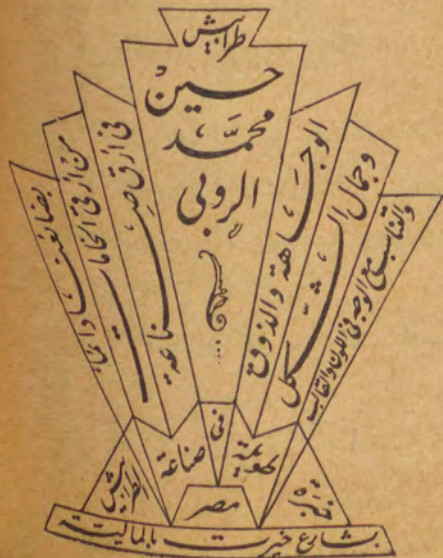 طرابيش
حسين
محمد
الروبى
الوجاهة والذوق
وجمال الشكل
والتناسب مع الوجه فى اللون والقالب
فى أرق صناعة
من أرقى الخامات
بضائعنا
فى
صناعة
الطرابيش
مصر
بشارع خيرت بالمالية